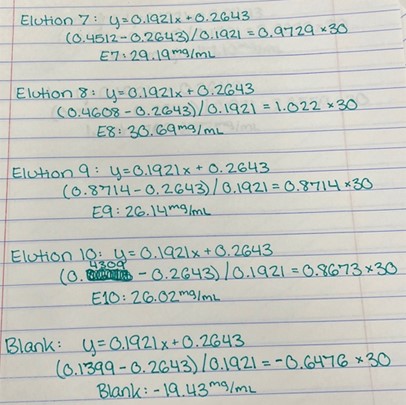 Elution 7: y=0.1921x+0.2643
(0.4512-0.2643)/0.1921=0.9729×30
E7:29.19mg/mL
Elution 8: y=0.1921x+0.2643
(0.4608-0.2643)/0.1921=1.022×30
E8:30.69mg/mL
Elution 9: y=0.1921x+0.2643
(0.8714-0.2643)/0.1921=0.8714×30
E9:26.14mg/mL
Elution 10: y=0.1921x+0.2643
(0.4309-0.2643)/0.1921=0.8673×30
E10:26.02mg/mL
Blank: y=0.1921x+0.2643
(0.1399-0.2643)/0.1921=-0.6476×30
Blank:-19.43mg/mL